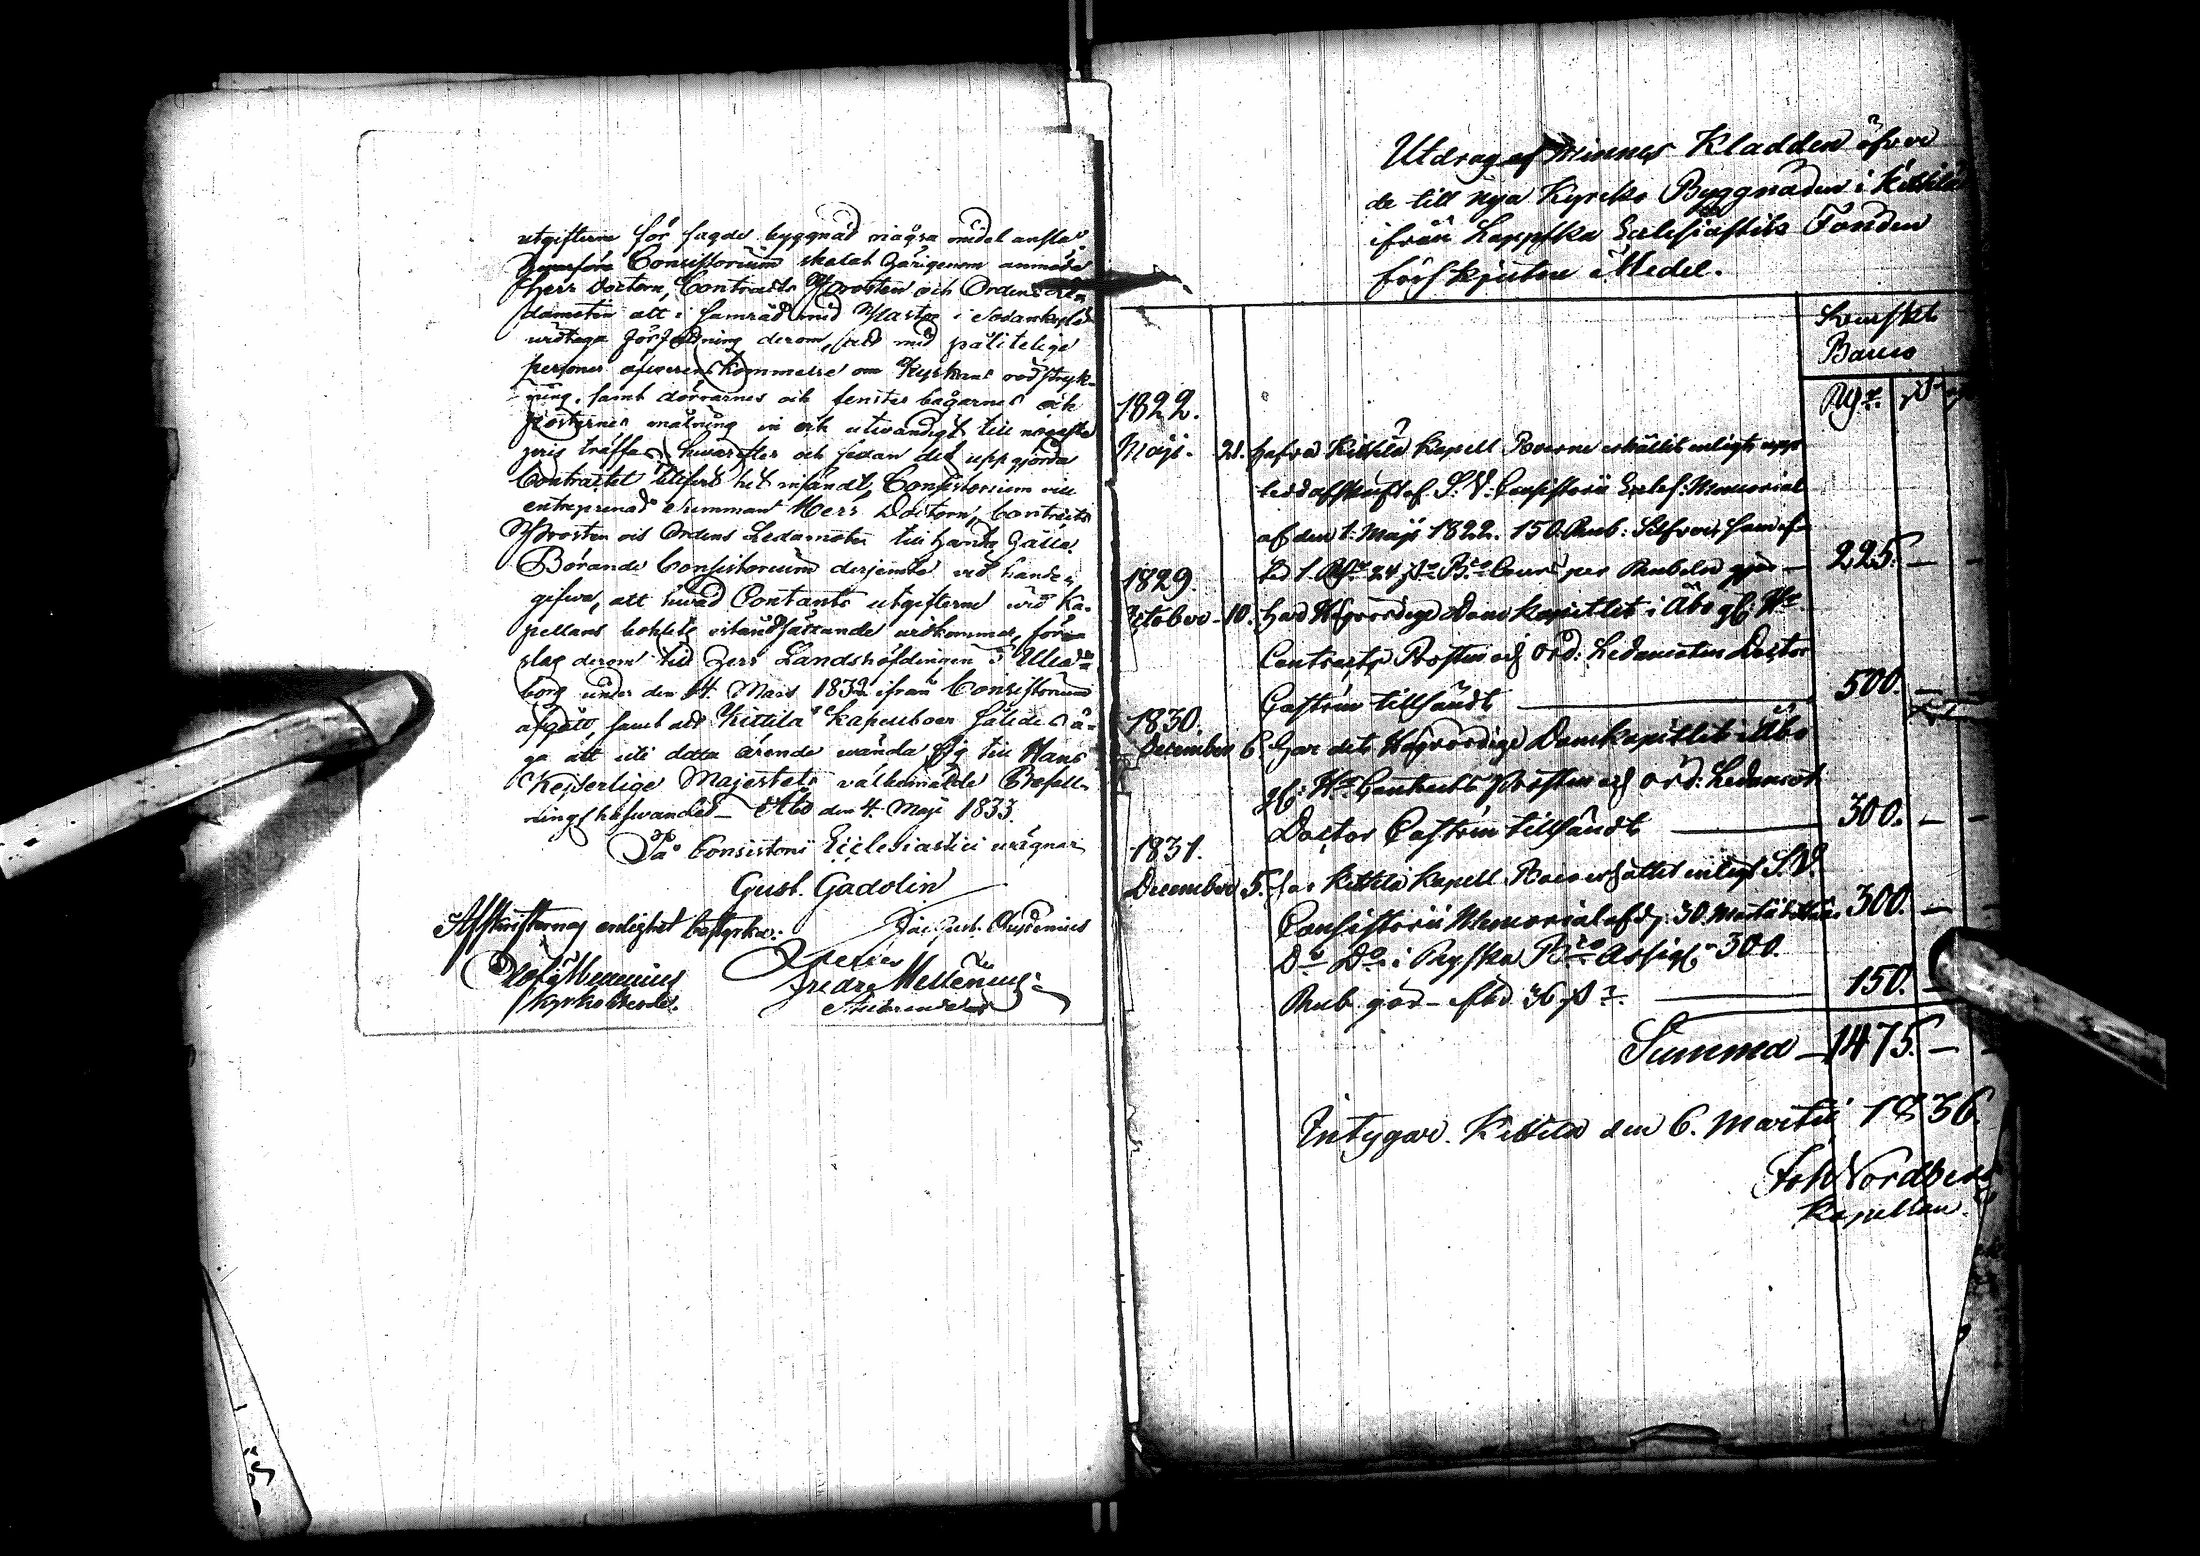 utgifterne för sagde byggnad någre medel ansla
hvarföre Consistorium skolat härigenom anmoda
Herr Doctorn, Contracts Prosten och Ordens Le
damoten att i samråd med Pastor i Sodankylä
widtaga författning derom, att med pålitelige
personer öfwerenskommelse om Kyrkans rödstryk-
ning, samt dörrarnes och fenster bågarnes och
posternes målning in och utwändigt till
pris träffas, hwarefter och sedan det uppgjorda
Contractet blifwit hit insändt, Consistorium vill
entreprenad summan Herr Doctorn, Contracts
Prosten och Ordens Ledamoten till handa hålla.
Börande Consistorium derjemte wid handen
gifwa, att hwad Contanta utgifterne wid Ka-
pellans boställe iståndsättande widkommer, förs
slag derom till Herr Landshöfdingen i Uleå-
borg under den 14. Mars 1832 ifrån Consistorium
afgått, samt att Kittilä Kapellboer således ä-
ga att uti detta ärende wända sig till Hans
Kejserlige Majestets välbemälde Befall-
ningshafwande. Åbo den 4. Maji 1833.
På Consistorii Ecclesiastici wägnar
Gust. Gadolin
Afskrifternas enlighet bestyrka:
Gust.
Fredr. Mellenius
Kyrkoherde.
Utdrag af Minnes Kladden öfver
de till nya Kyrcko Byggnaden i Kittilä
ifrån Lappska Eclesiastik Fonden
förskjutne Medel.
Svenskt
Banco
1822.
Maji. 21. hafva Kittilä Kapell Boerne erhållit enligt
afskrift af S. V. Consistorii Eccles: Memorial
af den 1. Maji 1822. 150. Rub: Silfver,
1 24 per Rubeln gör — 225. — —
1829.
October 10. har Högvördige Domkapitlet i Åbo
Contracts Prosten och Ord: Ledamoten Doctor
Castrén tillsändt — 500. —
1830.
December 6. har dets Högvördige Domkapitlet i Åbo
Contracts Prosten och Ord: Ledamot
Doctor Castrén tillsändt — 300. — —
1831.
December 5. har Kittilä Kapell Boer erhållit enligt S. V.
Consistorii Memorial af d. 30. Martii 300. — —
Do Do i Ryska Bco Assign 300.
Rub gör — 36 — 150. —
Summa — 1475. — —
Intygar. Kittilä den 6. Martii 1836.
Joh Nordberg
Kapellan.